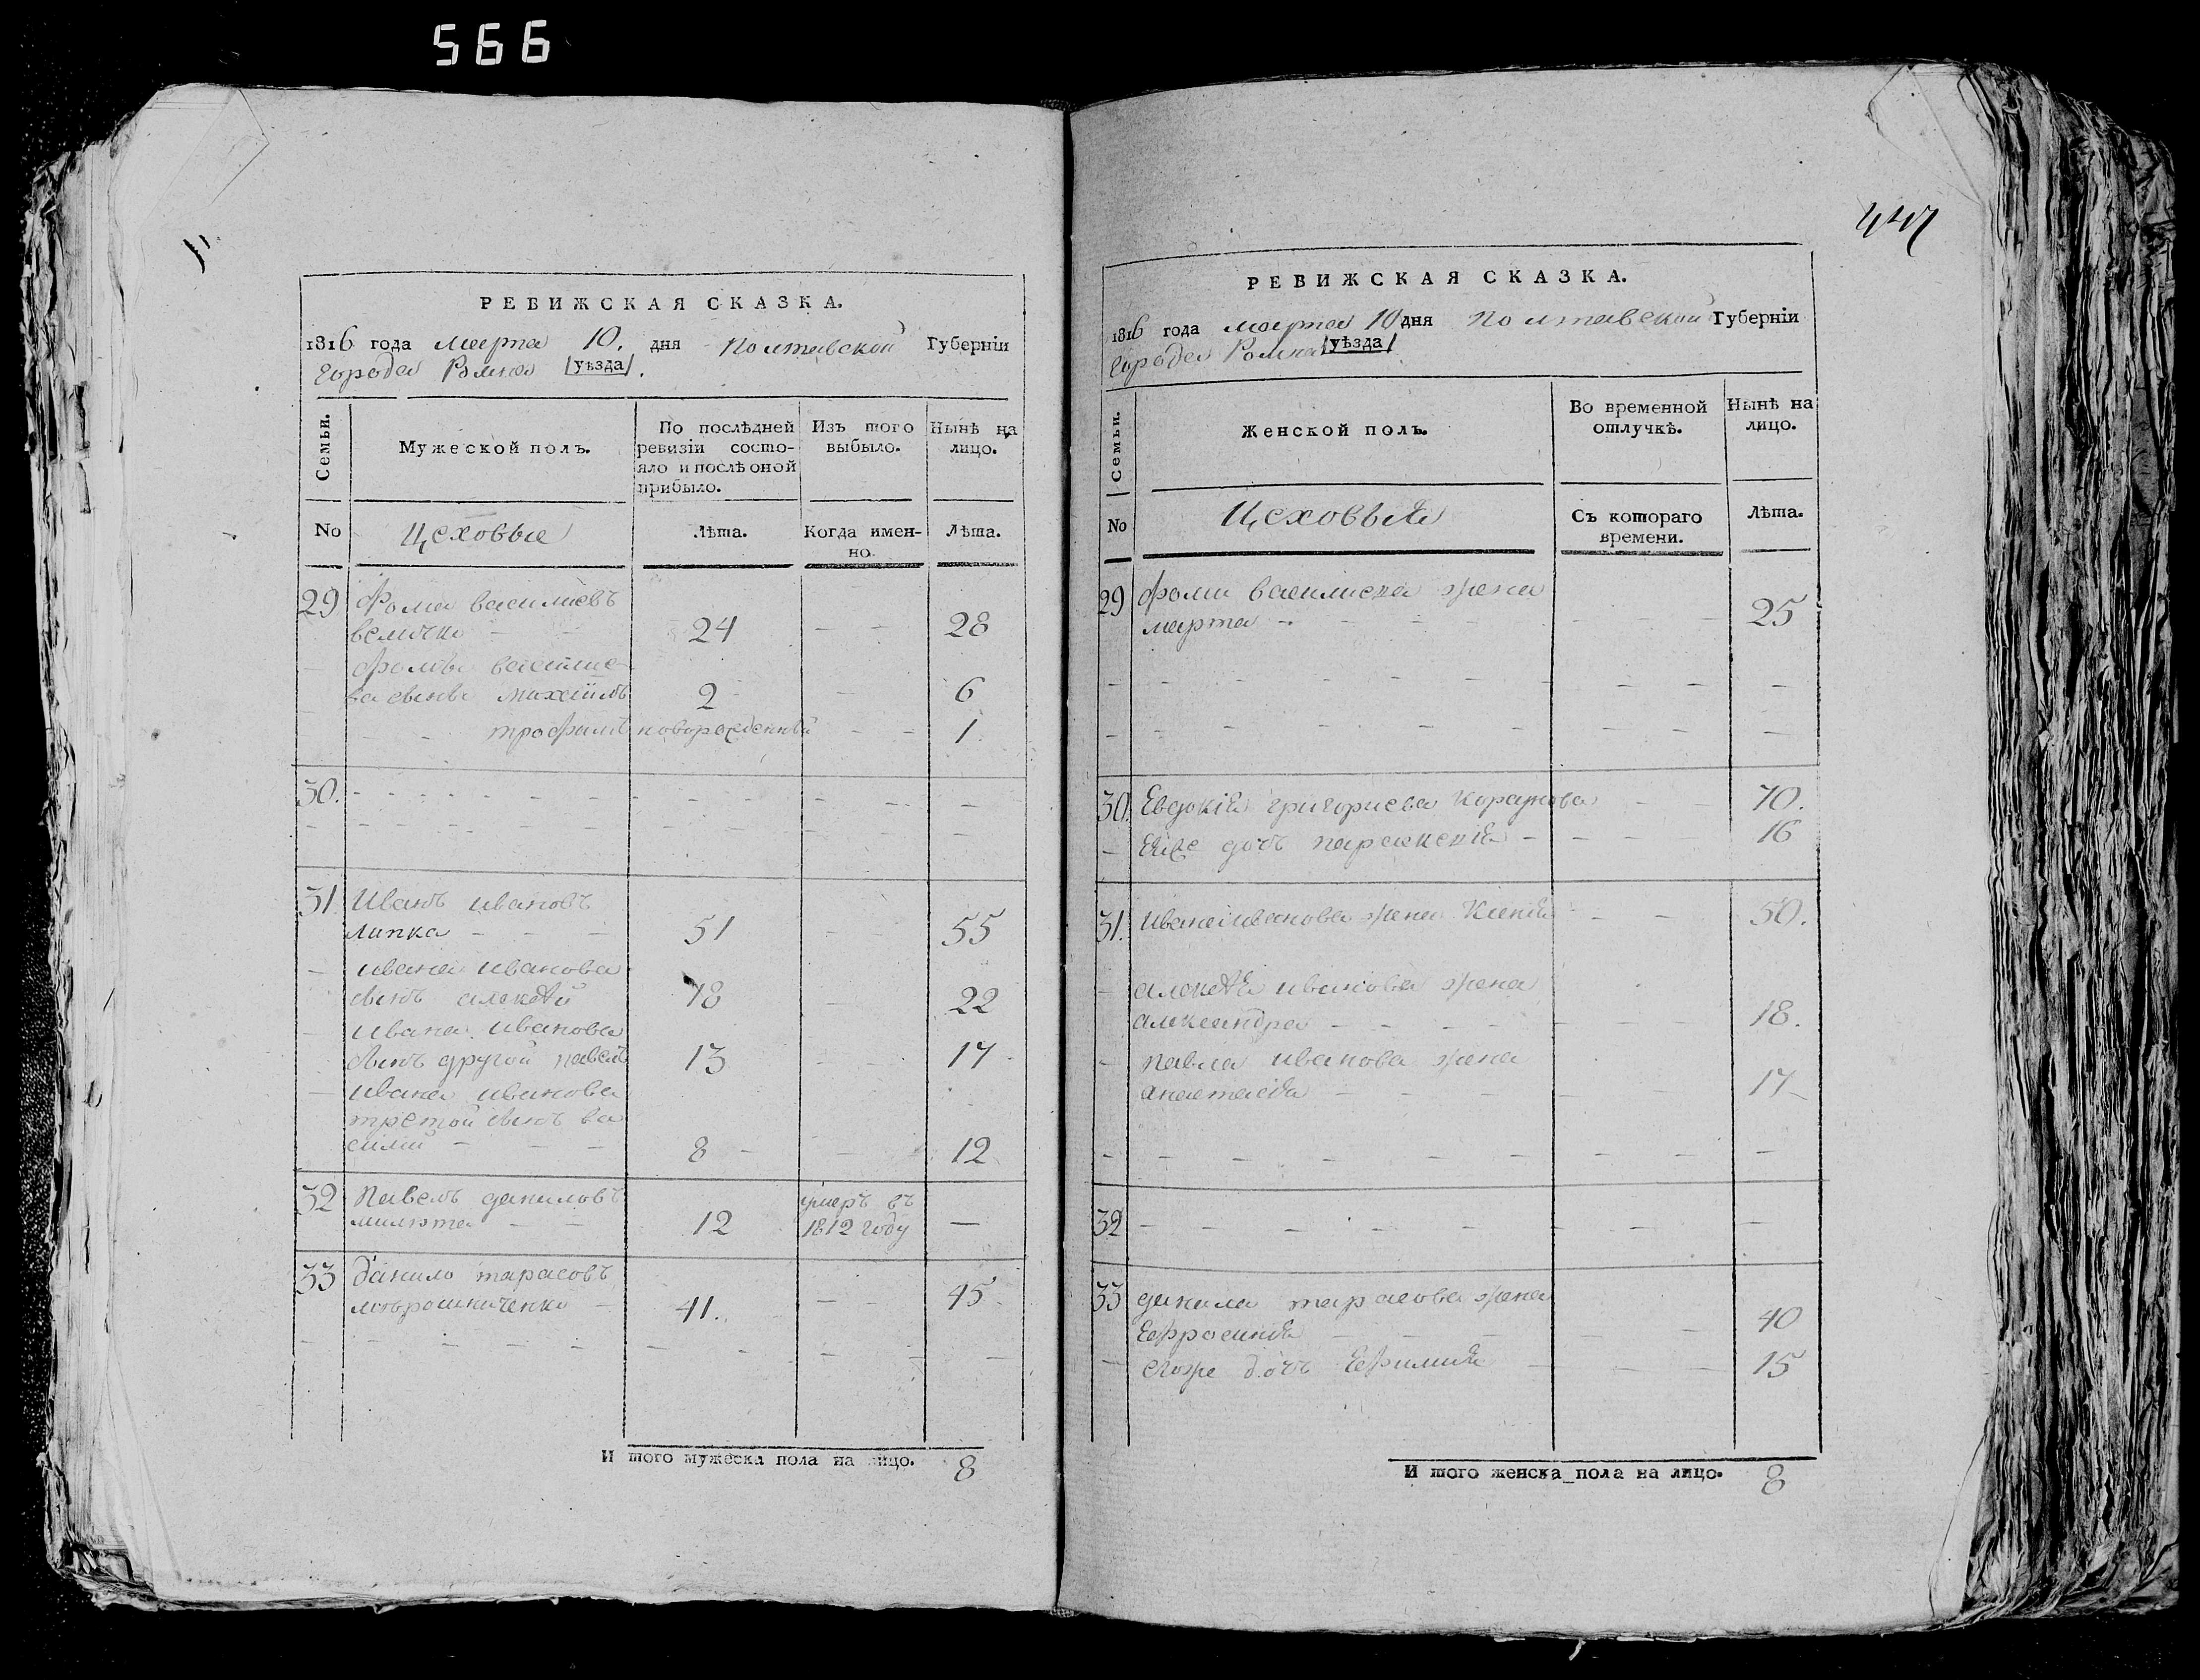 566
447
РЕВИЖСКАЯ СКАЗКА.
1816 года марта 10. дня Полтавской Губерніи
города Ромна уѣзда.
Семьи.
Мужеской полъ.
По послѣдней ревизіи состояло и послѣ оной прибыло.
Изъ того выбыло.
Нынѣ на лицо.
No
Цеховые
Лѣта.
Когда именно.
Лѣта.
29 Фома васильевъ
величко - - 24 - - 28
Фомы василие-
ва сынъ михаилъ 2 - 6
- - трофимъ новорожденный - - 1
30. - - - - - - - - -
- - - - - - - - -
31 Иванъ ивановъ
липка - - - 51 - 55
- ивана иванова
сынъ алексѣй 18 - 22
- Ивана иванова
сынъ другой павелъ 13 - - 17
- ивана иванова
третой сынъ ва
силий - - - 8 - - 12
32 Павелъ даниловъ умеръ въ
- - 12 1812 году —
33 данило тарасовъ
- 41. - - 45
- - - - - - - - -
И того мужеска пола на лицо. 8
РЕВИЖСКАЯ СКАЗКА.
1816 года марта 10 дня Полтавской Губерніи
города Ромна уѣзда
Семьи.
Женской полъ.
Во временной отлучкѣ.
Нынѣ на лицо.
No
Цеховыя
Съ котораго времени.
Лѣта.
29 фомы василиева жена
марта - - - - - 25
- - - - - - - - -
- - - - - - - - -
30. Евдокія григориева - - 70.
- Еяже дочь параскевія - - - 16
31. ивана иванова жена - - 50.
- алексѣя иванова жена
александра - - - - - 18.
- павла иванова жена
анастасія - - - - - 17
- - - - - - - - -
32 - - - - - - - -
33 данила тарасова жена
Ефросинія - - - - 40
- егоже дочь Ефимия - - - 15
И того женска пола на лицо. 8